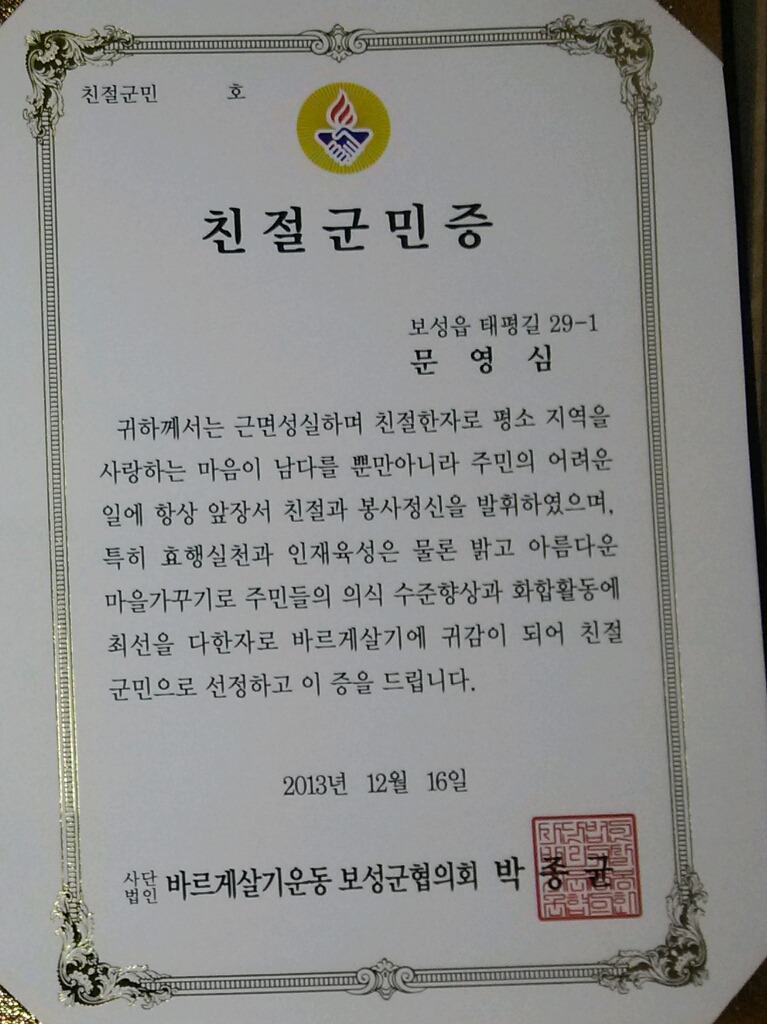 친절군민 호
친절군민증
보성읍 태평길 29-1
문 영 심
귀하께서는 근면성실하며 친절한자로 평소 지역을
사랑하는 마음이 남다를 뿐만아니라 주민의 어려운
일에 항상 앞장서 친절과 봉사정신을 발휘하였으며,
특히 효행실천과 인재육성은 물론 밝고 아름다운
마을가꾸기로 주민들의 의식 수준향상과 화합활동에
최선을 다한자로 바르게살기에 귀감이 되어 친절
군민으로 선정하고 이 증을 드립니다.
2013년 12월 16일
사단법인 바르게살기운동 보성군협의회 박 종 균